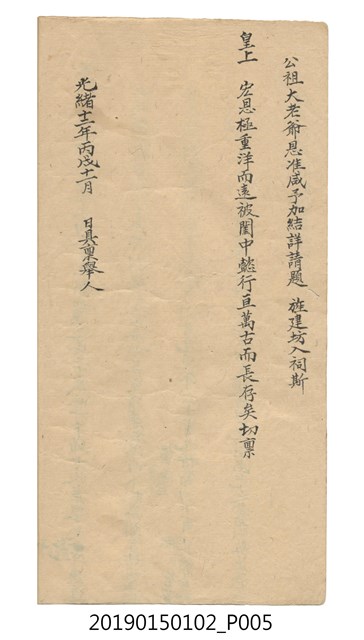 公祖大老爺恩准咸予加結詳請題　旌建坊入祠斯
皇上　宏恩極重洋而遠被閨中懿行亘萬古而長存矣切稟
光緒十二年丙戌十一月　日具稟舉人
20190150102_P005